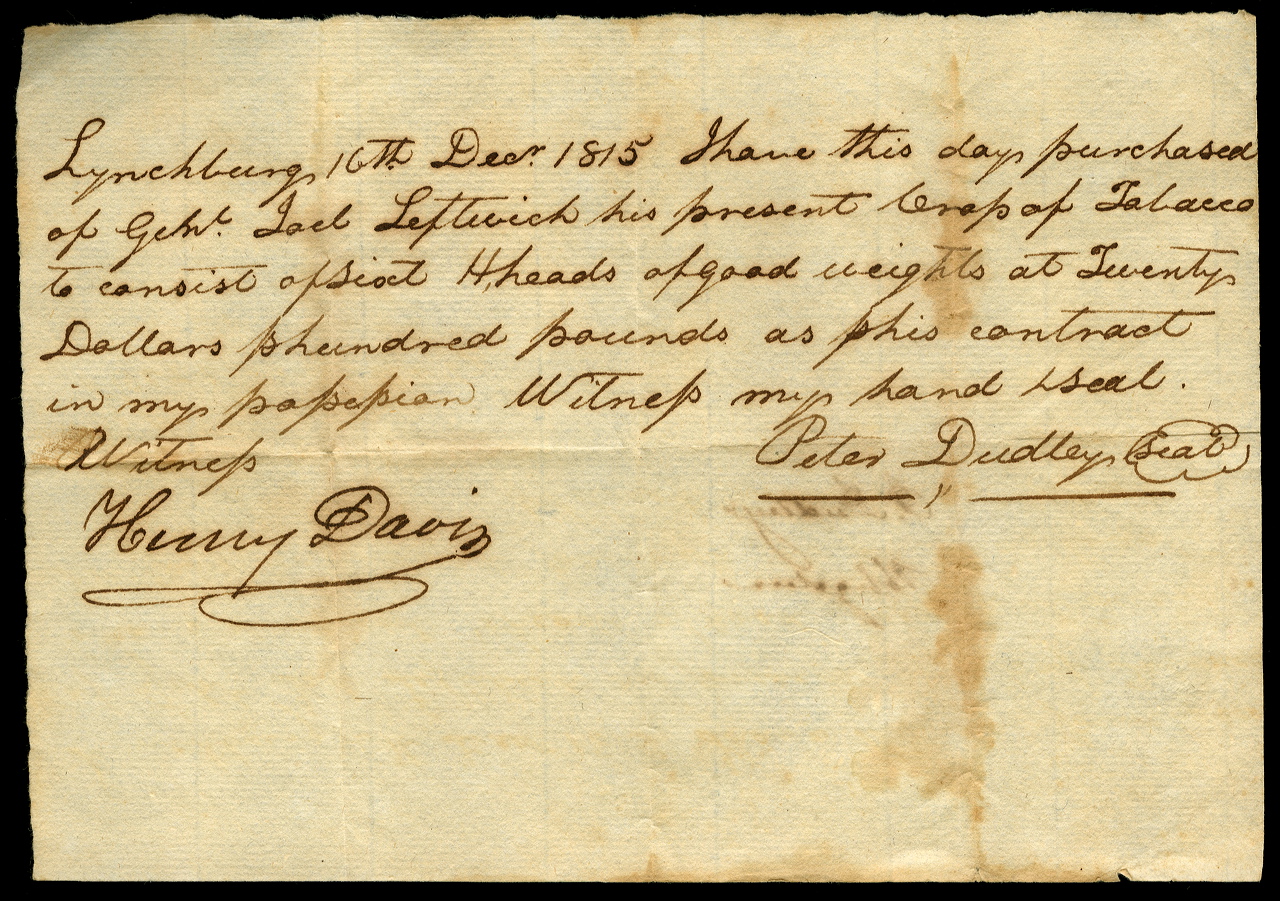 Lynchburg 16th Decr. 1815 I have this day purchased
of Genl. Joel Leftwich his present Crop of Tobacco
to consist of Sixt Hheads of good weights at Twenty
Dollars p hundred pounds as p his contract
in my possession Witness my hand & Seal.
Witness Peter Dudley Seal
Henry Davis